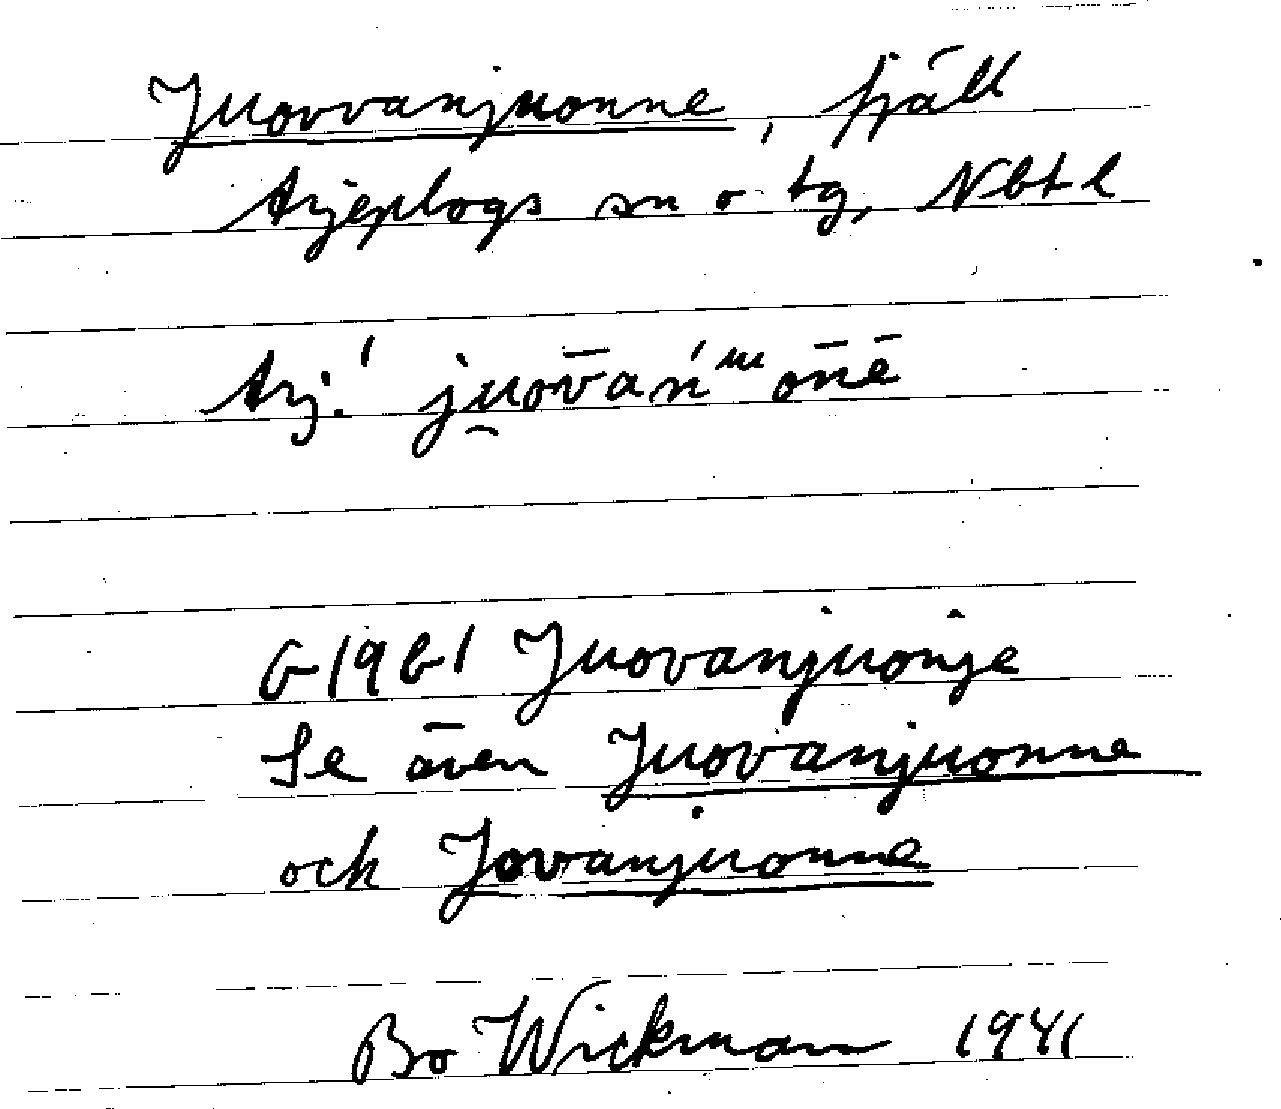 Juovvanjuonne, fjäll
Arjeplogs sn o tg, Nbtl
Arj.
G 1961 Juovanjuonje
Se även Juovanjuonne
och Jovanjuonne
Bo Wickman 1941